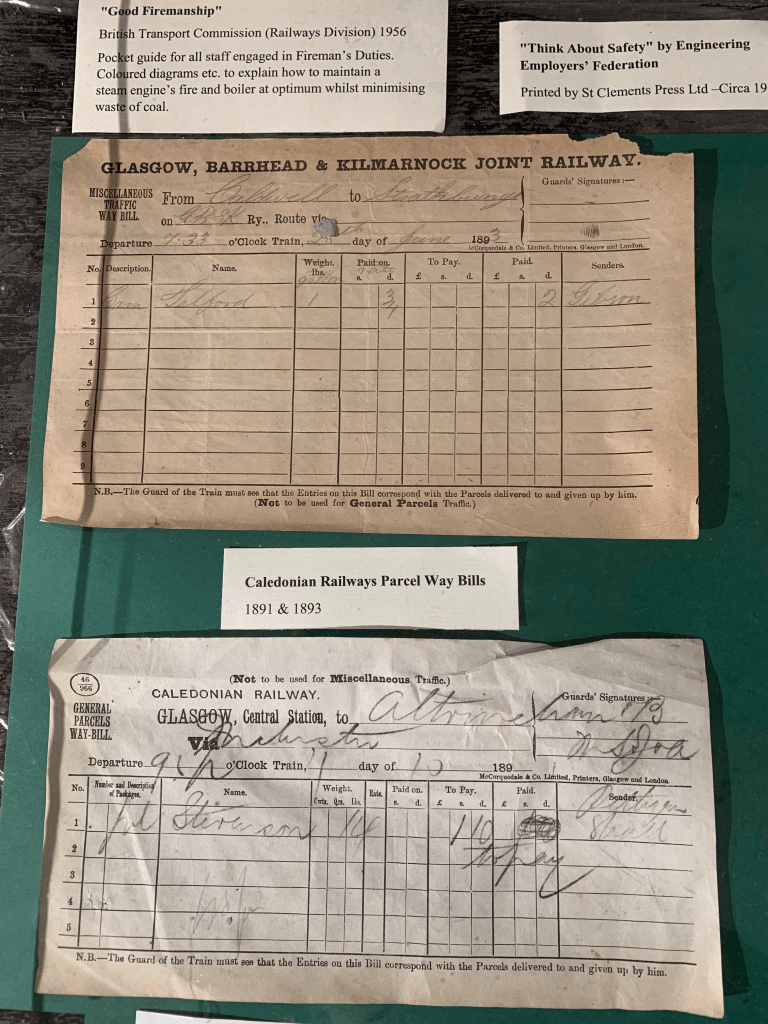 "Good Firemanship"
British Transport Commission (Railways Division) 1956
Pocket guide for all staff engaged in Fireman's Duties.
Coloured diagrams etc. to explain how to maintain a
steam engine's fire and boiler at optimum whilst minimising
waste of coal.
"Think About Safety" by Engineering
Employers' Federation
Printed by St Clements Press Ltd –Circa 19
GLASGOW, BARRHEAD & KILMARNOCK JOINT RAILWAY.
MISCELLANEOUS
TRAFFIC
WAY BILL.
From Caldwell to Strathbungo
Guards' Signatures:—
on Ry., Route via
Departure 7.33 o'Clock Train, day of June 1893
McCorquodale & Co. Limited, Printers, Glasgow and London.
No. Description. Name. Weight. lbs. Paid on. s. d. To Pay. £ s. d. Paid. £ s. d. Senders.
gallon
1 Telford 1 2 Gibson
2
3
4
5
6
7
8
9
N.B.—The Guard of the Train must see that the Entries on this Bill correspond with the Parcels delivered to and given up by him.
(Not to be used for General Parcels Traffic.)
Caledonian Railways Parcel Way Bills
1891 & 1893
46
966
(Not to be used for Miscellaneous Traffic.)
CALEDONIAN RAILWAY.
GENERAL
PARCELS
WAY-BILL.
GLASGOW, Central Station, to Altrincham
Guards' Signatures:—
Via
Departure 9 o'Clock Train, day of 10 189
McCorquodale & Co. Limited, Printers, Glasgow and London.
No. Number and Description of Packages. Name. Weight. Cwts. Qrs. Lbs. Rate. Paid on. s. d. To Pay. £ s. d. Paid. £ s. d. Sender.
1 Stevenson 14 1 10
to pay
2
3
4
5
N.B.—The Guard of the Train must see that the Entries on this Bill correspond with the Parcels delivered to and given up by him.